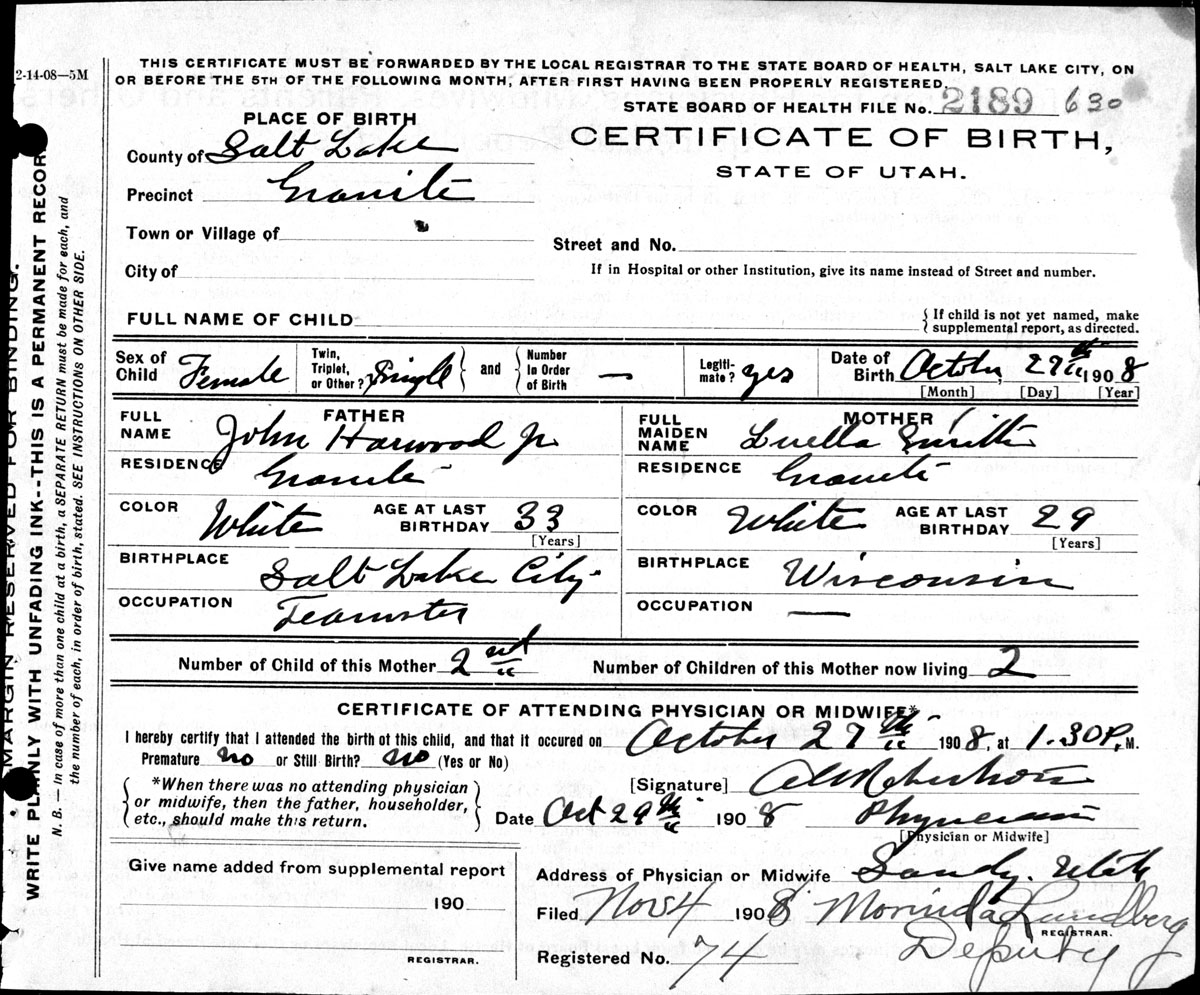 2-14-08—5M
THIS CERTIFICATE MUST BE FORWARDED BY THE LOCAL REGISTRAR TO THE STATE BOARD OF HEALTH, SALT LAKE CITY, ON
OR BEFORE THE 5TH OF THE FOLLOWING MONTH, AFTER FIRST HAVING BEEN PROPERLY REGISTERED.
STATE BOARD OF HEALTH FILE No. 2189 630
PLACE OF BIRTH
CERTIFICATE OF BIRTH,
STATE OF UTAH.
County of Salt Lake
Precinct Granite
Town or Village of
Street and No.
City of
If in Hospital or other Institution, give its name instead of Street and number.
FULL NAME OF CHILD
{ If child is not yet named, make
supplemental report, as directed.
Sex of Child Female
Twin, Triplet, or Other? Single } and { Number In Order of Birth —
Legiti-mate? yes
Date of Birth October, 27th 1908
[Month] [Day] [Year]
FATHER
FULL NAME John Harwood Jr
RESIDENCE Granite
COLOR White AGE AT LAST BIRTHDAY 33
[Years]
BIRTHPLACE Salt Lake City
OCCUPATION Teamster
MOTHER
FULL MAIDEN NAME Luella Smith
RESIDENCE Granite
COLOR White AGE AT LAST BIRTHDAY 29
[Years]
BIRTHPLACE Wisconsin
OCCUPATION —
Number of Child of this Mother 2nd
Number of Children of this Mother now living 2
CERTIFICATE OF ATTENDING PHYSICIAN OR MIDWIFE*
I hereby certify that I attended the birth of this child, and that it occured on October 27th 1908, at 1.30 P, M.
Premature no or Still Birth? no (Yes or No)
*When there was no attending physician
or midwife, then the father, householder,
etc., should make this return.
[Signature]
Date Oct 29th 1908 Physician
[Physician or Midwife]
Give name added from supplemental report
190
REGISTRAR.
Address of Physician or Midwife Sandy. Utah
Filed Nov 4 1908 Morinda Lundberg
REGISTRAR.
Registered No. 74 Deputy
MARGIN RESERVED FOR BINDING.
WRITE PLAINLY WITH UNFADING INK--THIS IS A PERMANENT RECOR
N. B. — In case of more than one child at a birth, a SEPARATE RETURN must be made for each, and
the number of each, in order of birth, stated. SEE INSTRUCTIONS ON OTHER SIDE.